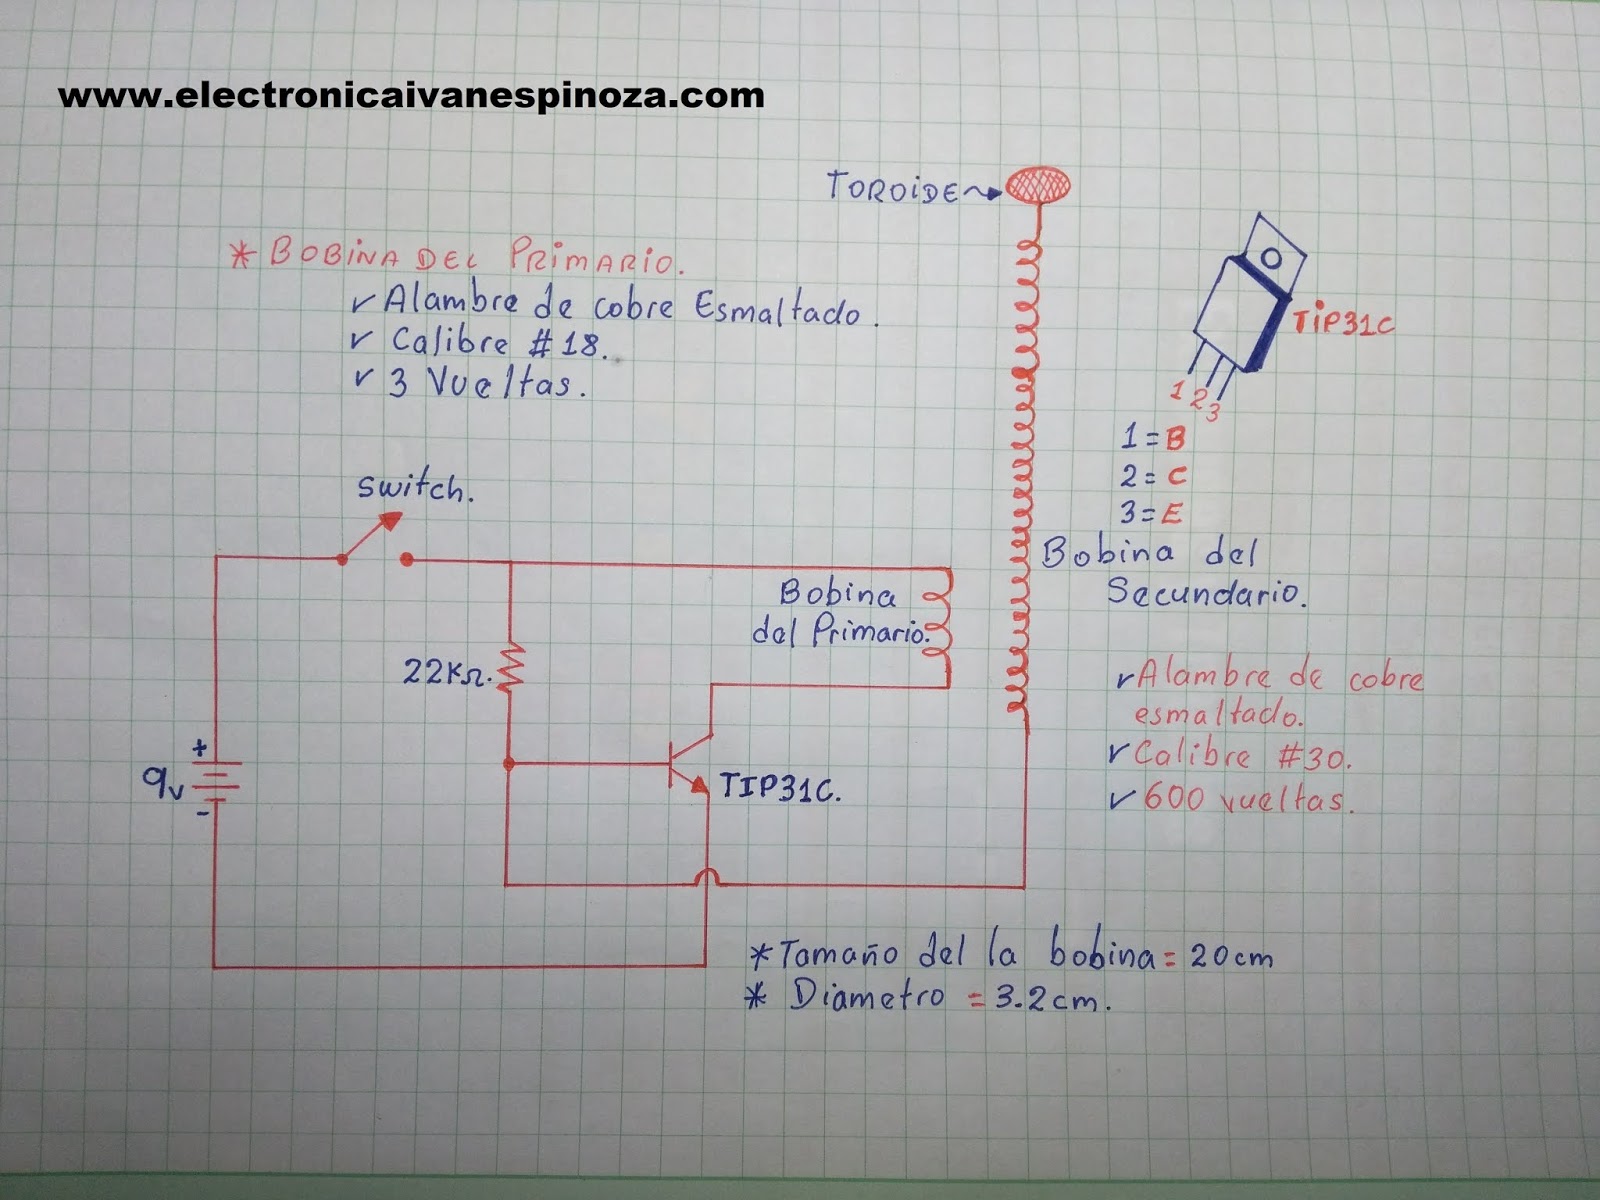 www.electronicaivanespinoza.com
TOROiDE
* BOBiNA DEL PRiMARiO.
✓ Alambre de cobre Esmaltado.
✓ Calibre #18.
✓ 3 Vueltas.
TiP31C
1 2 3
1 = B
2 = C
3 = E
switch.
Bobina del
Secundario.
Bobina
del Primario.
22KΩ.
✓ Alambre de cobre
esmaltado.
✓ Calibre #30.
✓ 600 vueltas.
+
9v
-
TIP31C.
* Tamaño del la bobina = 20cm
* Diametro = 3.2cm.